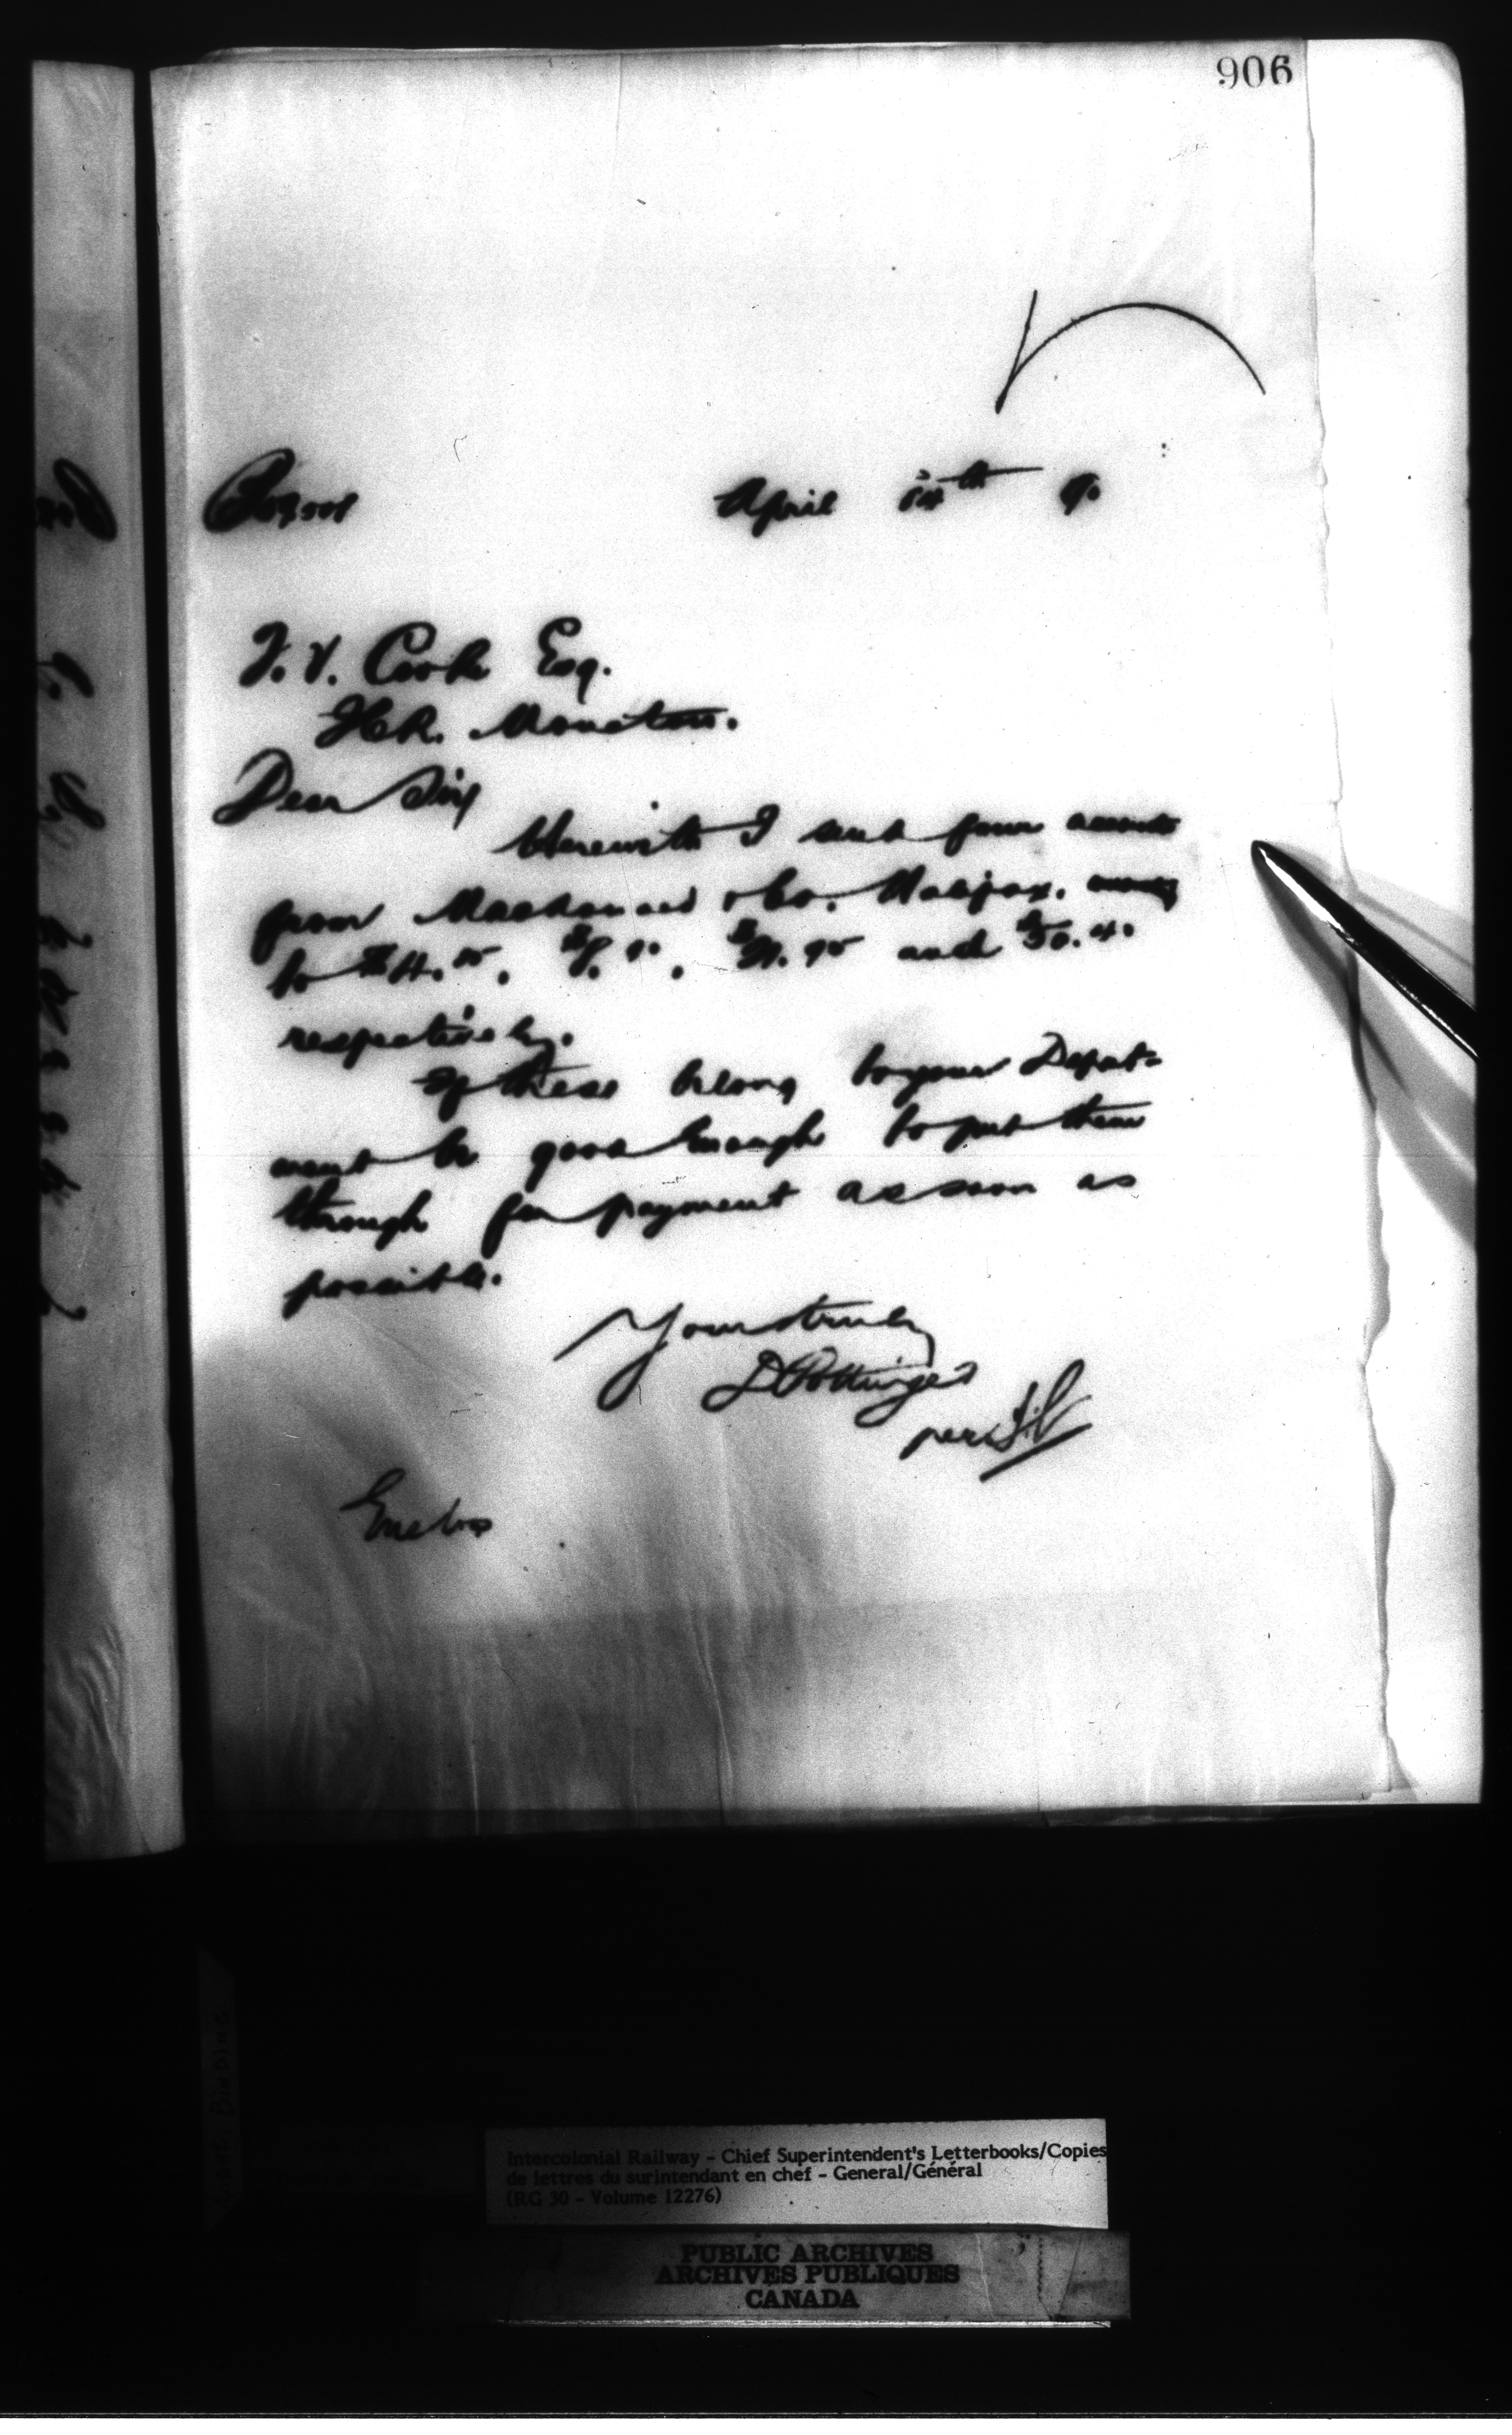 906
April th 9.
T. V. Cooke Esq.
ICR. Moncton.
Dear Sir
Herewith I send four accounts
from & Co. Halifax.
to and
respectively.
If these belong to your Depart-
ment be good enough to put them
through for payment as soon as
possible.
Yours truly
D Pottinger
per
Enclos
Intercolonial Railway - Chief Superintendent's Letterbooks/Copies
de lettres du surintendant en chef - General/Général
(RG 30 - Volume 12276)
PUBLIC ARCHIVES
ARCHIVES PUBLIQUES
CANADA